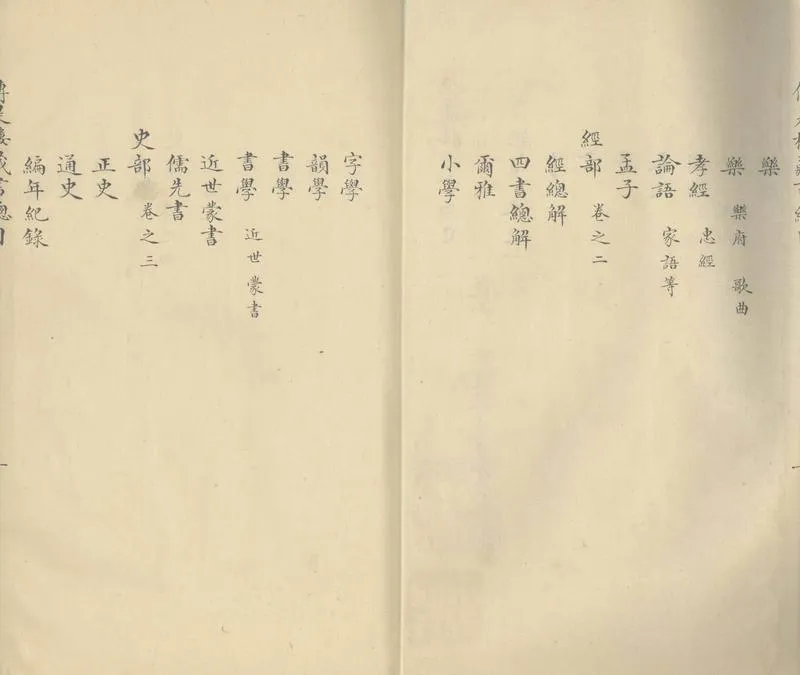 樂
樂 樂府 歌曲
孝經 忠經
論語 家語等
孟子
經部 卷之二
經總解
四書總解
爾雅
小學
字學
韻學
書學
書學 近世蒙書
近世蒙書
儒先書
史部 卷之三
正史
通史
編年紀錄
傳是樓藏書總目